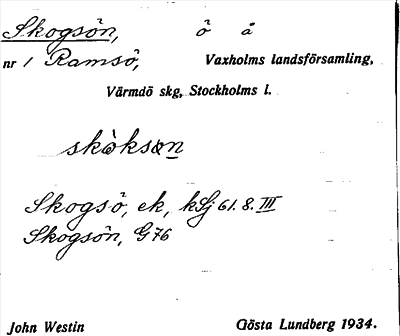 Skogsön, ö å
nr 1 Ramsö, Vaxholms landsförsamling,
Värmdö skg, Stockholms l.
Skogsö, ek, kSj 61. 8. III
Skogsön, G76
John Westin Gösta Lundberg 1934.